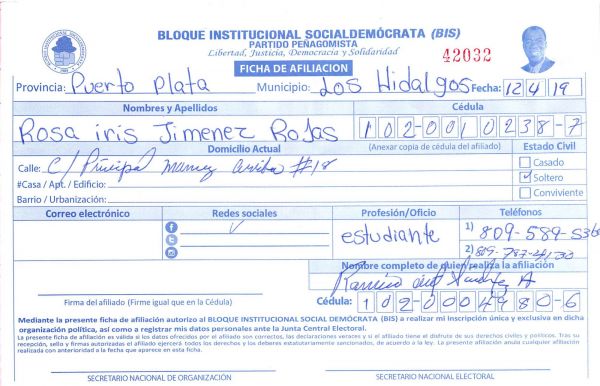 BLOQUE INSTITUCIONAL SOCIALDEMÓCRATA (BIS)
PARTIDO PEÑAGOMISTA
Libertad, Justicia, Democracia y Solidaridad
42032
FICHA DE AFILIACION
Provincia: Puerto Plata Municipio: Los Hidalgos Fecha: 12 4 19
Nombres y Apellidos Cédula
Rosa iris Jimenez Rojas 102-0010238-7
Domicilio Actual (Anexar copia de cédula del afiliado) Estado Civil
Calle: C/ Principal Mamey arriba #18 Casado
#Casa / Apt. / Edificio: Soltero
Barrio / Urbanización: Conviviente
Correo electrónico Redes sociales Profesión/Oficio Teléfonos
estudiante 1) 809-589-536
2) 809-787-4130
Nombre completo de quien realiza la afiliación
Ramiro
Firma del afiliado (Firme igual que en la Cédula) Cédula: 102-0004980-6
Mediante la presente ficha de afiliación autorizo al BLOQUE INSTITUCIONAL SOCIAL DEMÓCRATA (BIS) a realizar mi inscripción única y exclusiva en dicha
organización política, así como a registrar mis datos personales ante la Junta Central Electoral.
La presente ficha de afiliación es válida si los datos ofrecidos por el afiliado son correctos, las declaraciones veraces y si el afiliado tiene el disfrute de sus derechos civiles y políticos. Tras su
recepción, sello y firmas autorizadas el afiliado ejercerá todos los derechos y los deberes estatutariamente sancionados, de acuerdo a la ley. La presente afiliación anula cualquier afiliación
realizada con anterioridad a la fecha que aparece en esta ficha.
SECRETARIO NACIONAL DE ORGANIZACIÓN SECRETARIO NACIONAL ELECTORAL